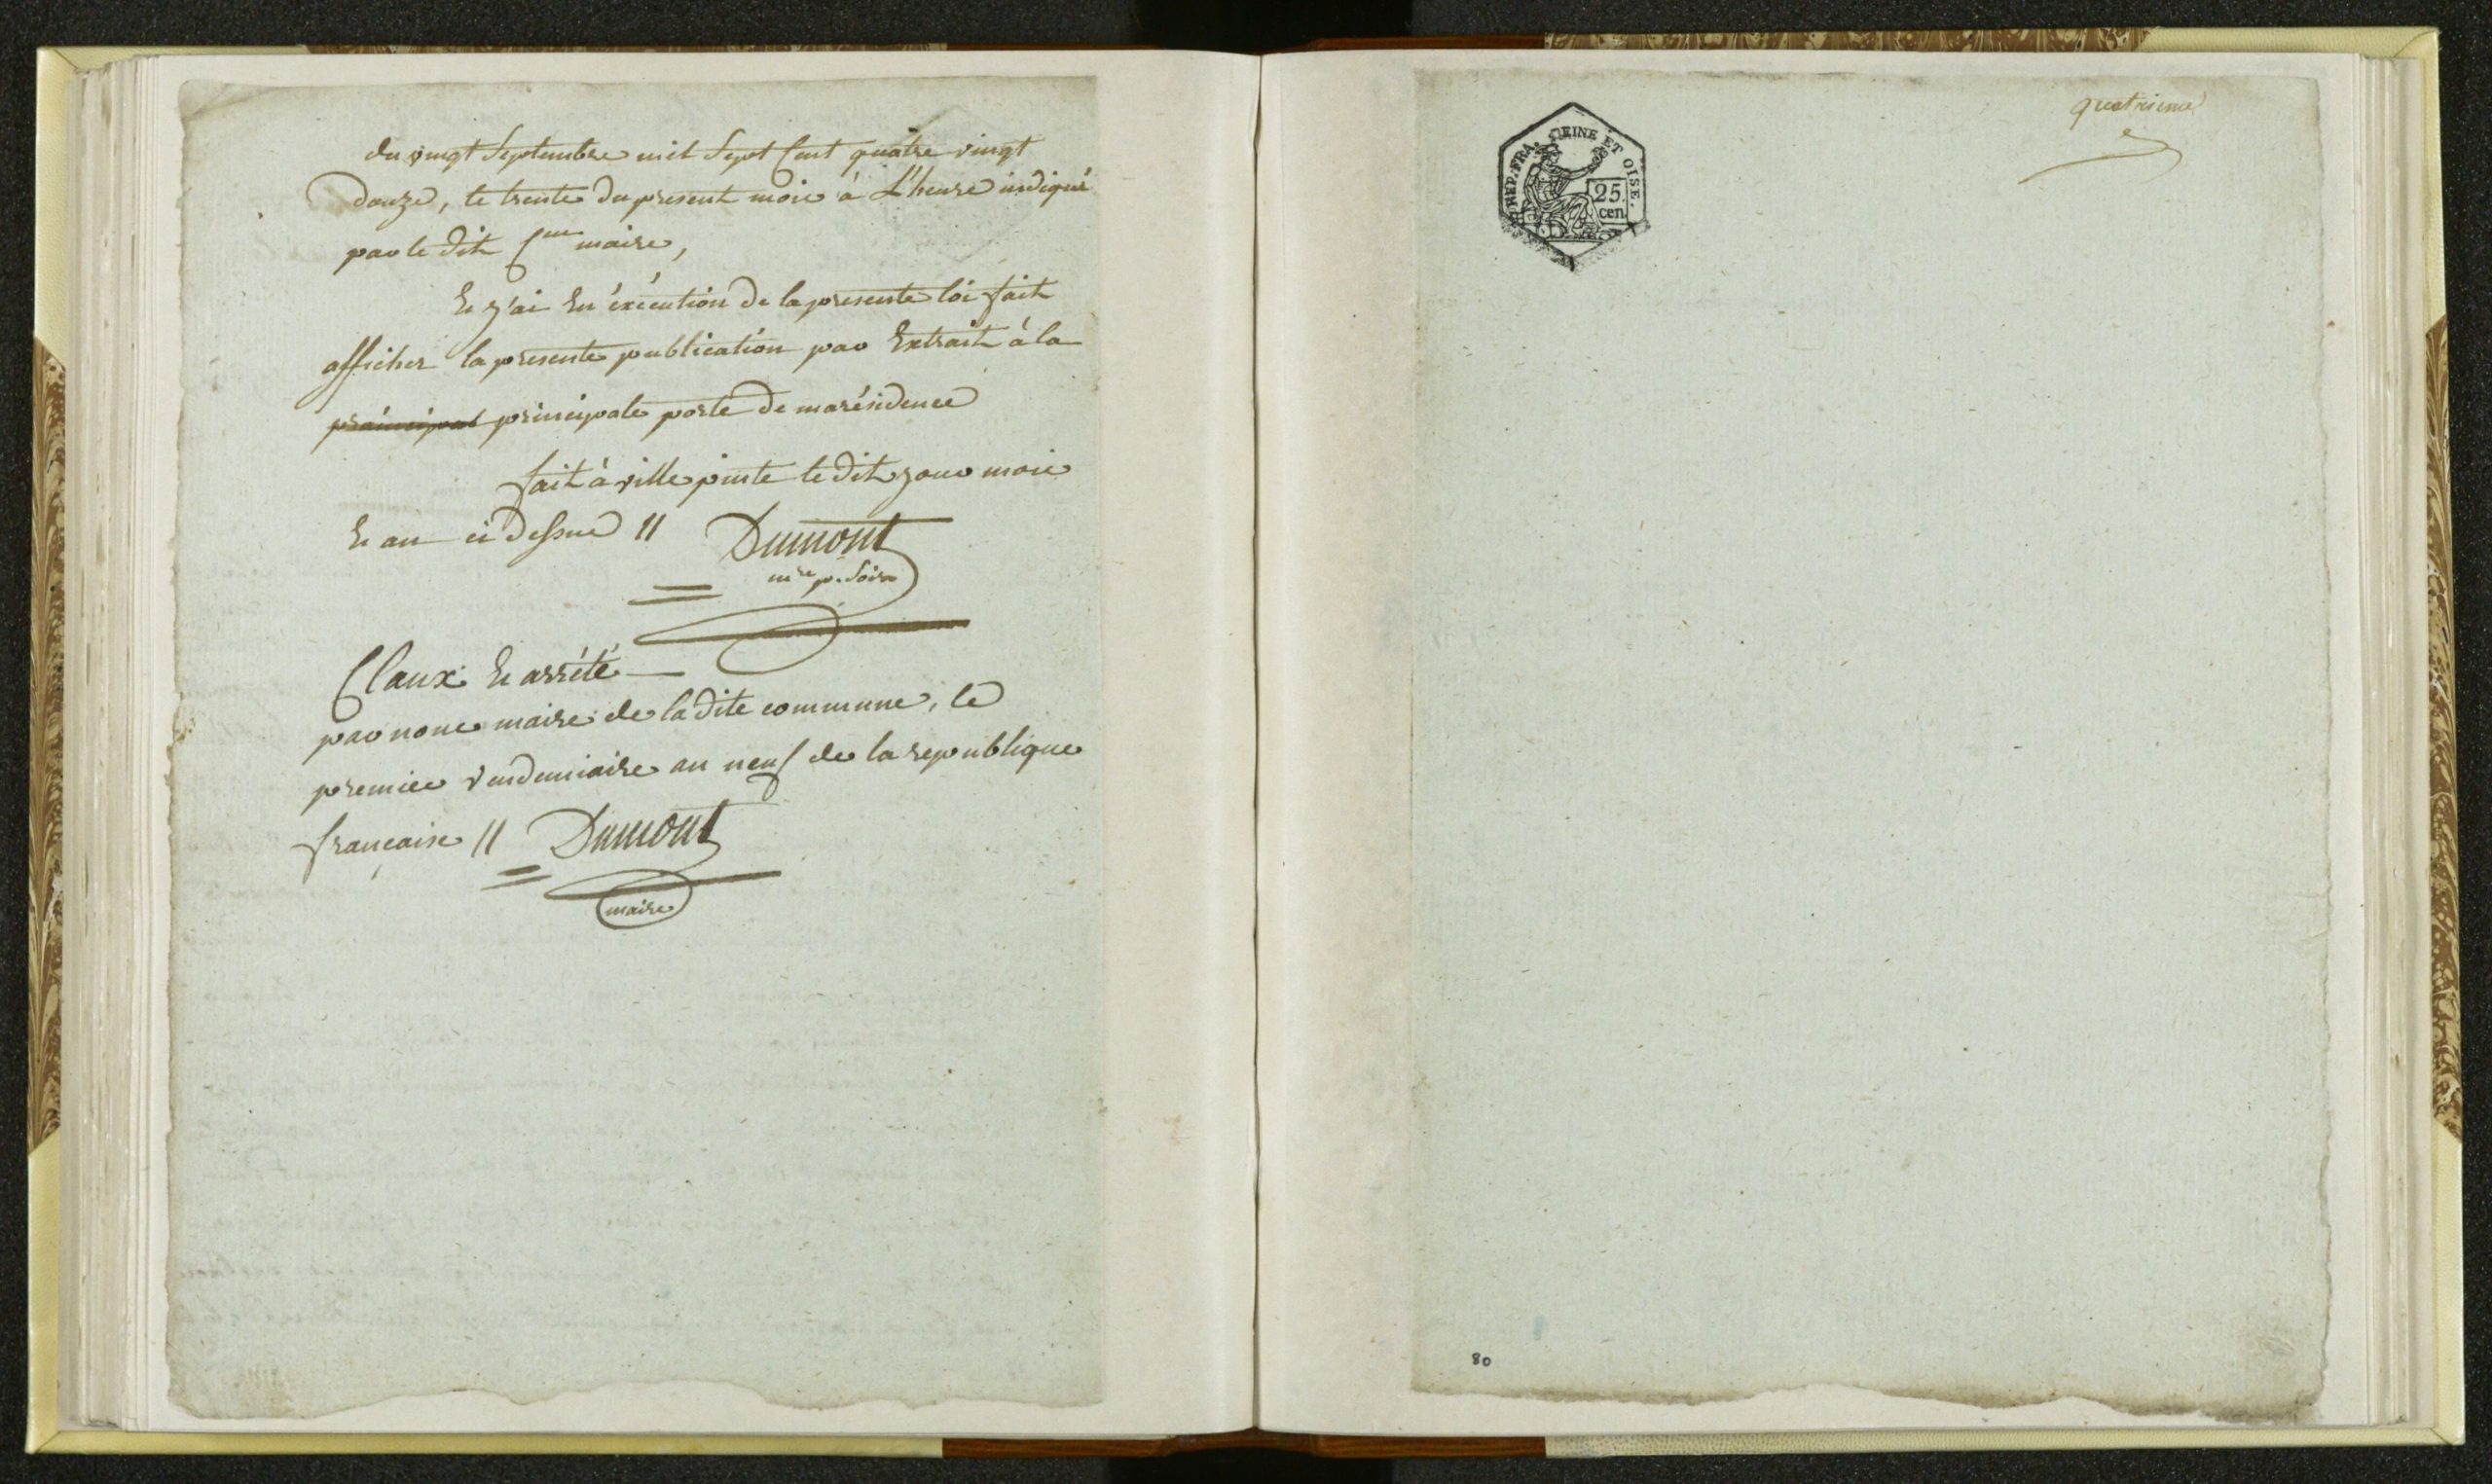 du vingt Septembre mil Sept Cent quatre vingt
douze, le trente du present mois à L'heure indiqué
par le dit Cen maire,
Et j'ai En éxécution de la presente loi fait
afficher la presente publication par Extrait à la
principal principale porte de ma résidence
fait à ville pinte le dit jour mois
Et an ci dessus //
Dumont
mre p. soire
Claux Et arrété
par nous maire de la dite commune, le
premier Vendemiaire an neuf de la republique
française // Dumont
maire
quatrieme
REP. FRA. SEINE ET OISE.
25.
cen.
80